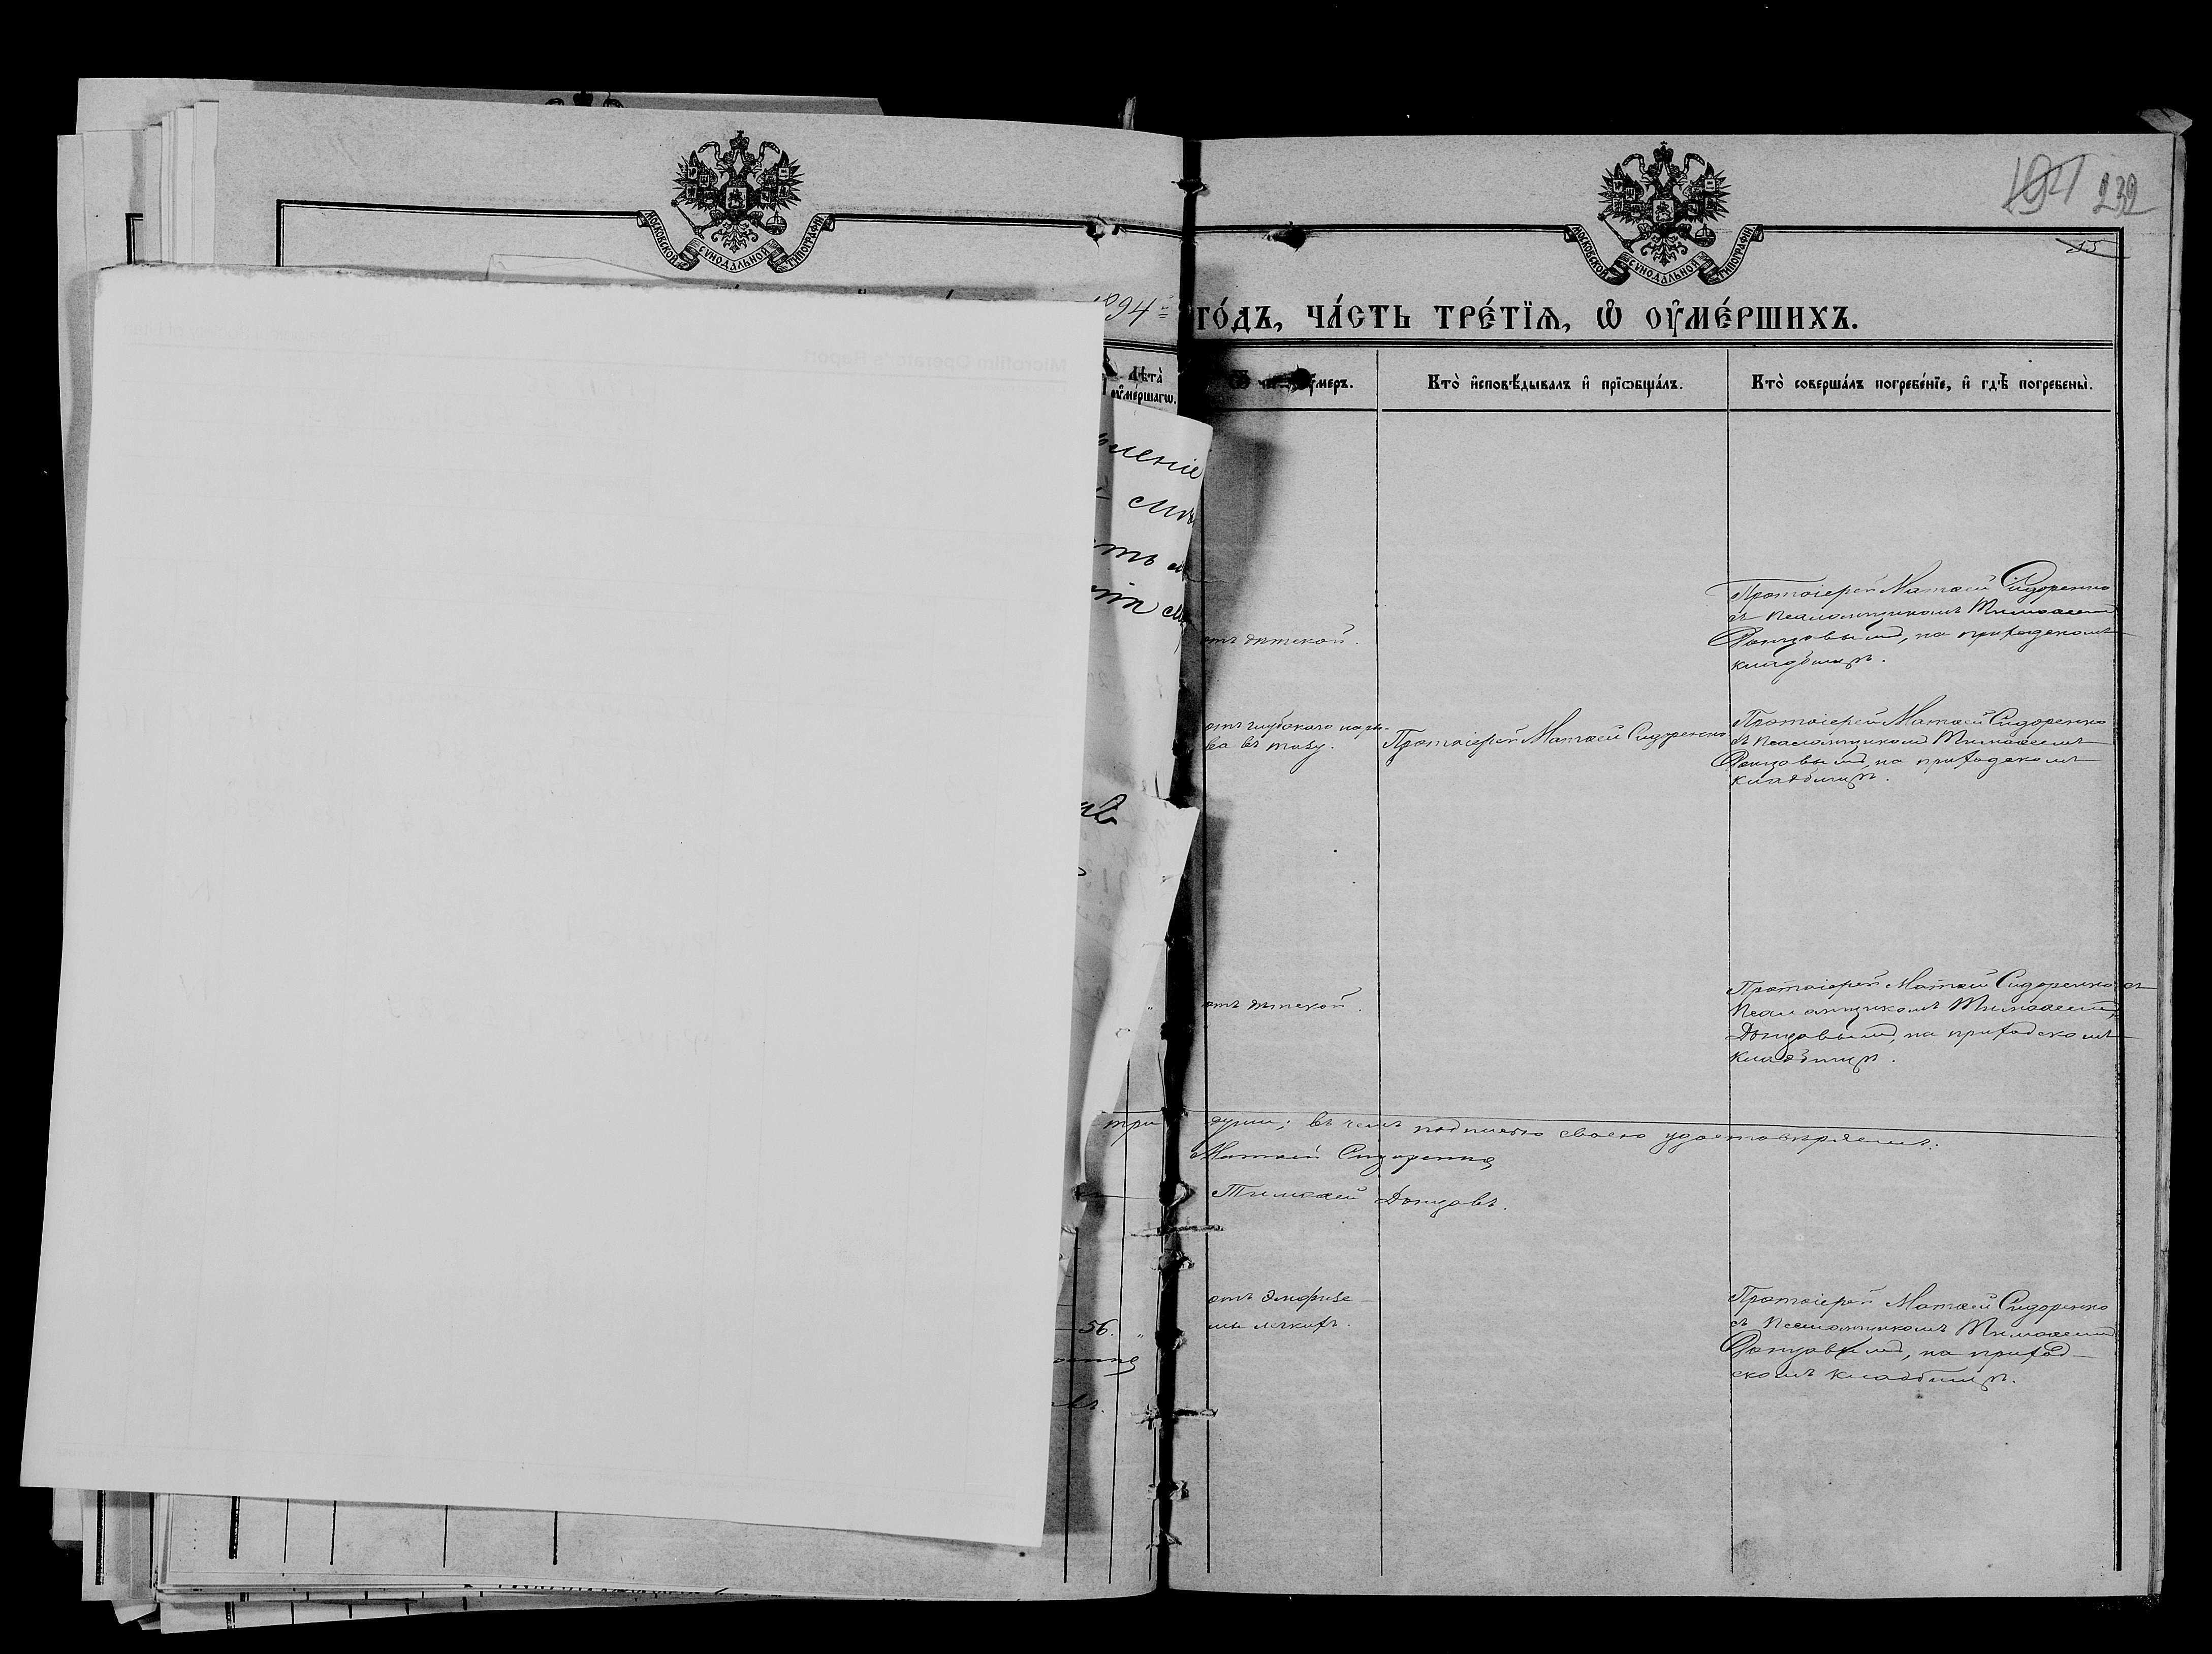 МОСКОВСКОЙ СѴНОДАЛЬНОЙ ТИПОГРАФІИ
МОСКОВСКОЙ СѴНОДАЛЬНОЙ ТИПОГРАФІИ
232
15
го́дъ, ча́сть тре́тїѧ, ѡ҆ ᲂу҆ме́ршихъ.
Лѣ́та
ᲂу҆ме́ршагѡ.
Кто̀ и҆сповѣ́дывалъ и҆ прїѡбща́лъ.
Кто̀ соверша́лъ погребе́нїе, и҆ гдѣ̀ погребены̀.
Протоіерей Матѳей Сидоренко
съ псаломщикомъ Тимоѳеемъ
Донцовымъ, на приходскомъ
кладбищѣ.
отъ дѣтской.
отъ глубокаго нары-
ва въ тазу.
Протоіерей Матѳей Сидоренко
Протоіерей Матѳей Сидоренко
съ псаломщикомъ Тимоѳеемъ
Донцовымъ, на приходскомъ
кладбищѣ.
отъ дѣтской.
Протоіерей Матѳей Сидоренко съ
псаломщикомъ Тимоѳеемъ
Донцовымъ, на приходскомъ
кладбищѣ.
три души; въ чемъ подписью своею удостовѣряемъ.
Матѳей Сидоренко
Тимоѳей Донцовъ.
отъ эмфизе-
мы легкихъ.
56.
Протоіерей Матѳей Сидоренко
съ псаломщикомъ Тимоѳеемъ
Донцовымъ, на приход-
скомъ кладбищѣ.